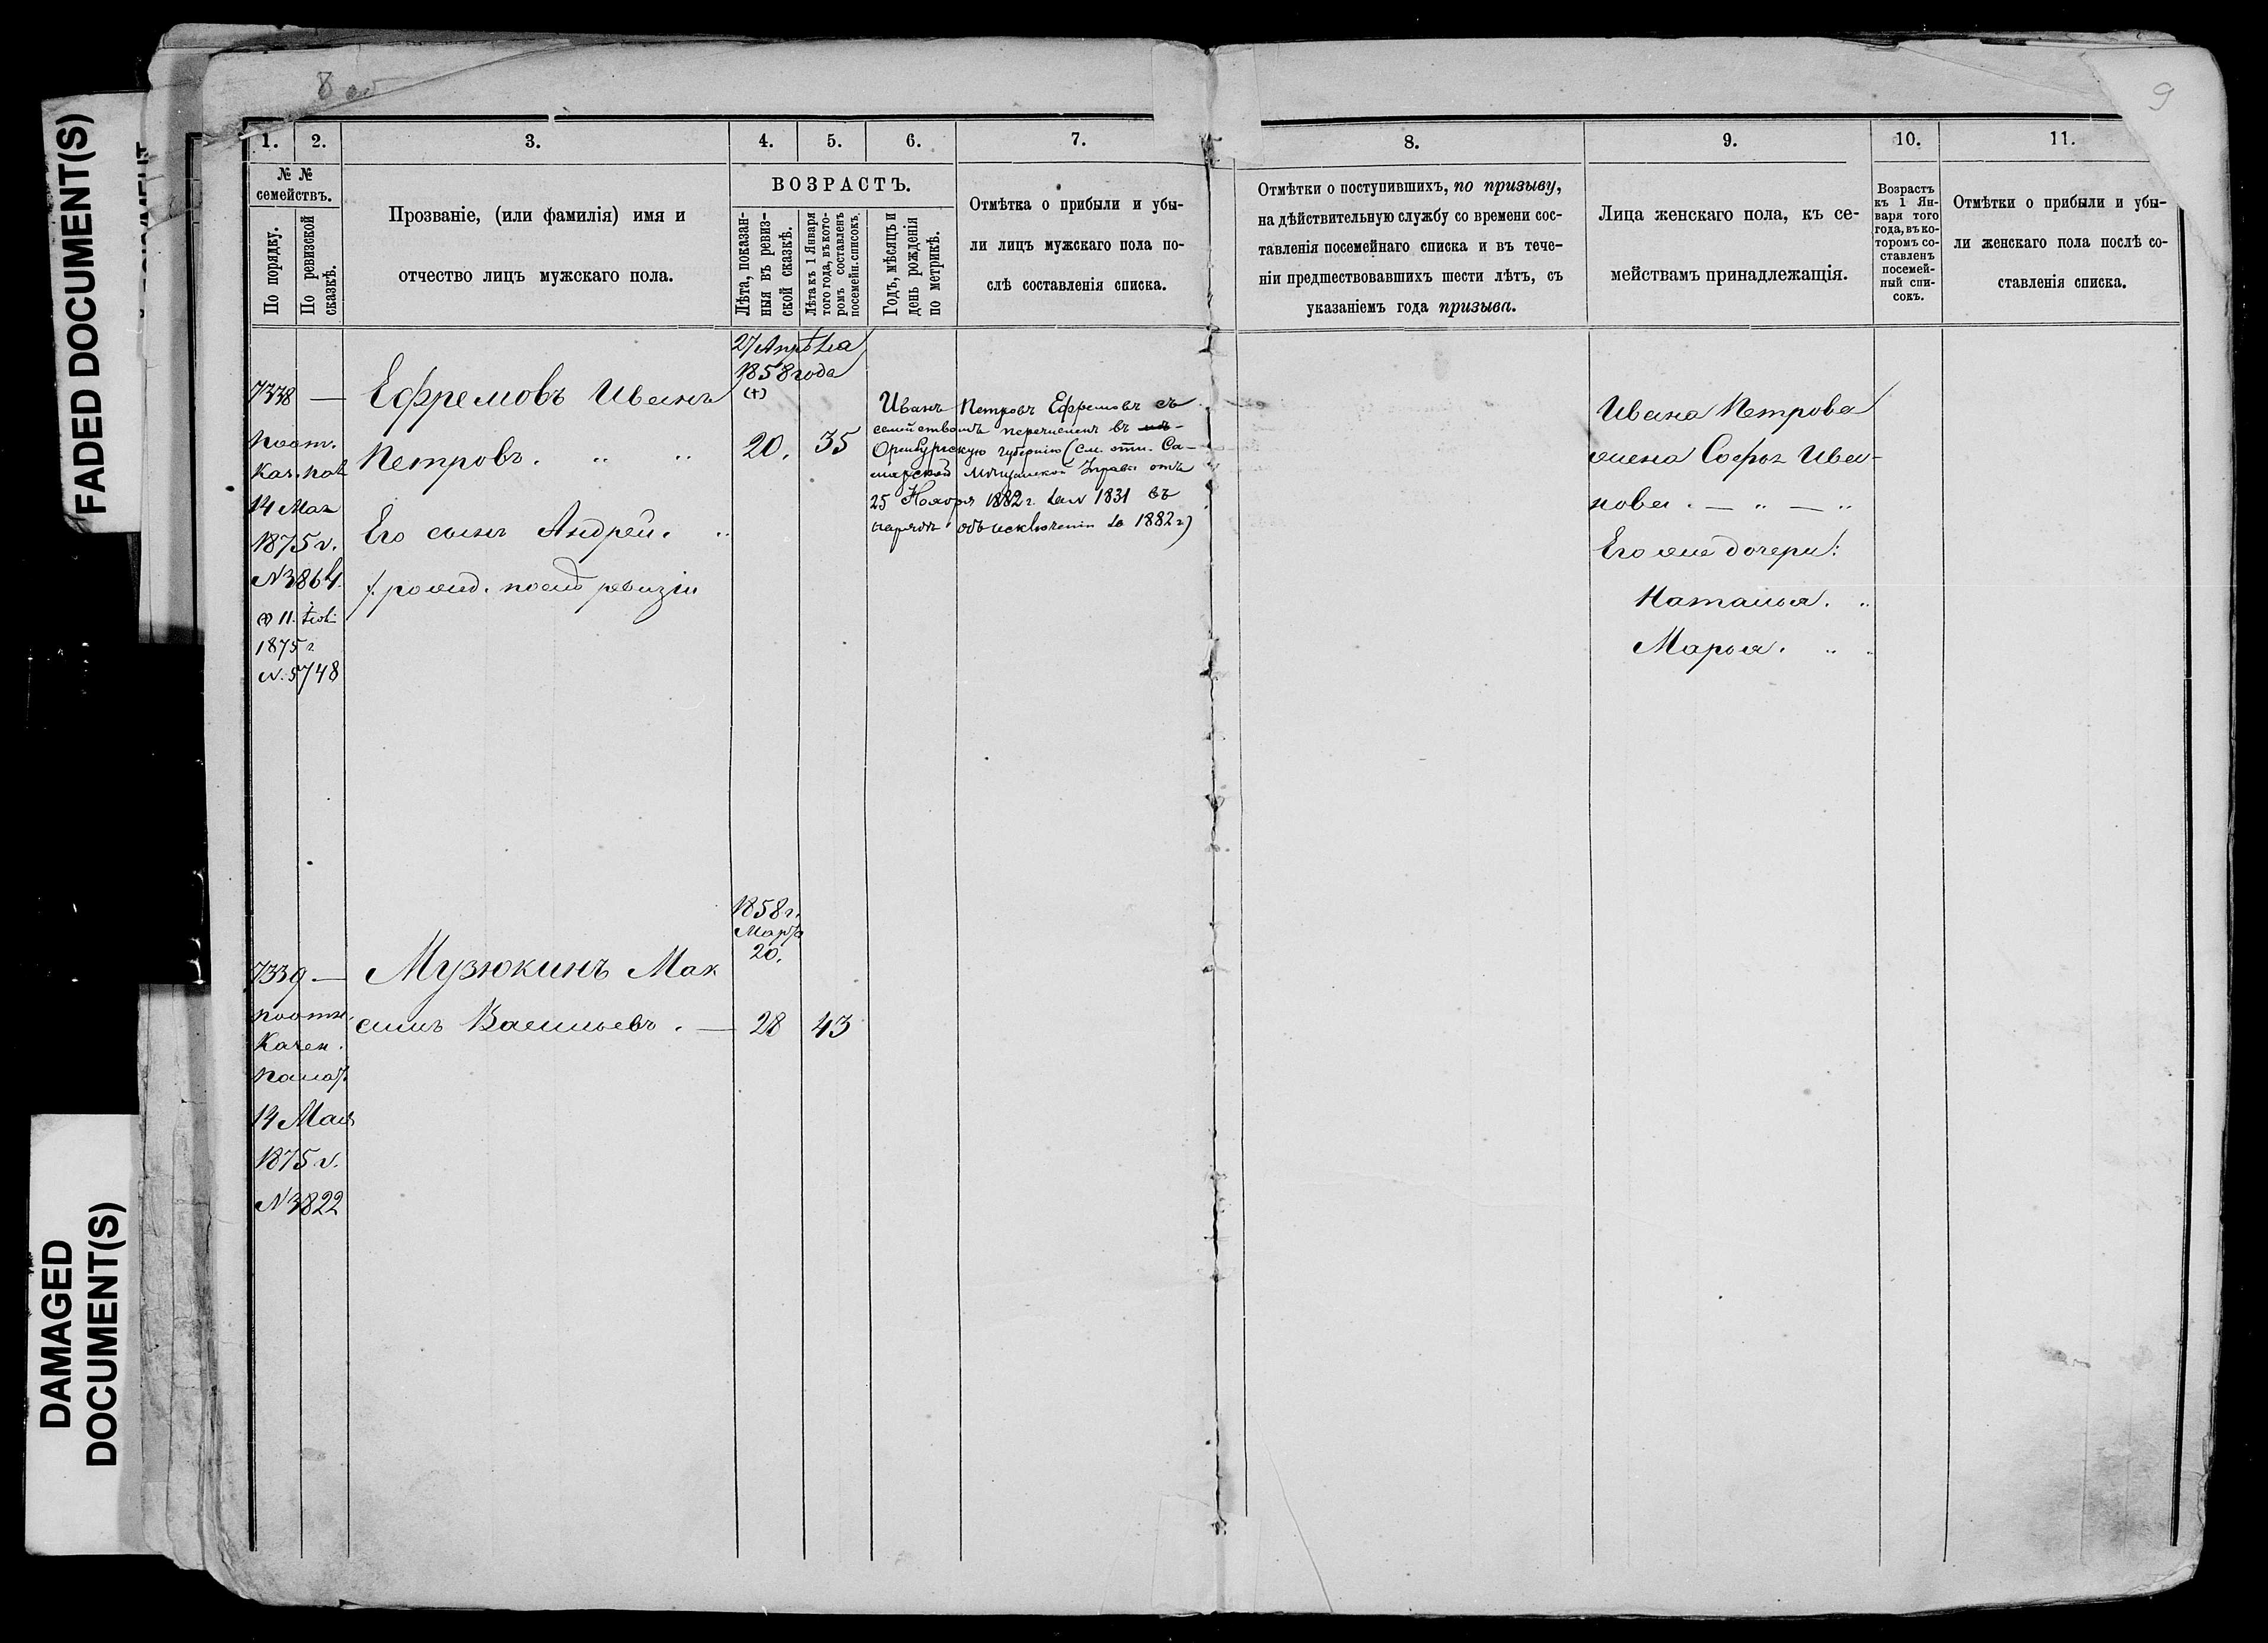 FADED DOCUMENT(S)
DAMAGED
DOCUMENT(S)
8 об
9
1.
2.
3.
4.
5.
6.
7.
8.
9.
10.
11.
№ №
семействъ.
По порядку.
По ревизской
сказкѣ.
Прозваніе, (или фамилія) имя и
отчество лицъ мужскаго пола.
ВОЗРАСТЪ.
Лѣта, показан-
ныя въ ревиз-
ской сказкѣ.
Лѣта къ 1 Января
того года, въ кото-
ромъ составленъ
посемейн. списокъ.
Годъ, мѣсяцъ и
день рожденія
по метрикѣ.
Отмѣтка о прибыли и убы-
ли лицъ мужскаго пола по-
слѣ составленія списка.
Отмѣтки о поступившихъ, по призыву,
на дѣйствительную службу со времени сос-
тавленія посемейнаго списка и въ тече-
ніи предшествовавшихъ шести лѣтъ, съ
указаніемъ года призыва.
Лица женскаго пола, къ се-
мействамъ принадлежащія.
Возрастъ
къ 1 Ян-
варя того
года, въ ко-
торомъ со-
ставленъ
посемей-
ный спи-
сокъ.
Отмѣтки о прибыли и убы-
ли женскаго пола послѣ со-
ставленія списка.
7338 —
Каз. пал
14 Мая
1875 г.
N 3864.
1875 г
N. 5748
Ефремовъ Иванъ
Петровъ. " "
Его сынъ Андрей. "
рожд. послѣ ревизіи
27 Апрѣля
1858 года
(+)
20. 35
Иванъ Петровъ Ефремовъ съ
семействомъ перечисленъ въ
Оренбургскую губернію (см. отн. Са-
марской Мѣщанской Управы отъ
25 Ноября 1882 г. за N 1831 въ
нарядѣ объ исключеніи за 1882 г)
Ивана Петрова
жена Софья Ива-
нова. — " — "
Его же дочери:
Наталья. "
Марья. " "
7339 —
Казен.
палат.
14 Мая
1875 г.
N 3822
Музюкинъ Мак
симъ Васильевъ. —
1858 г.
Марта
20.
28 43